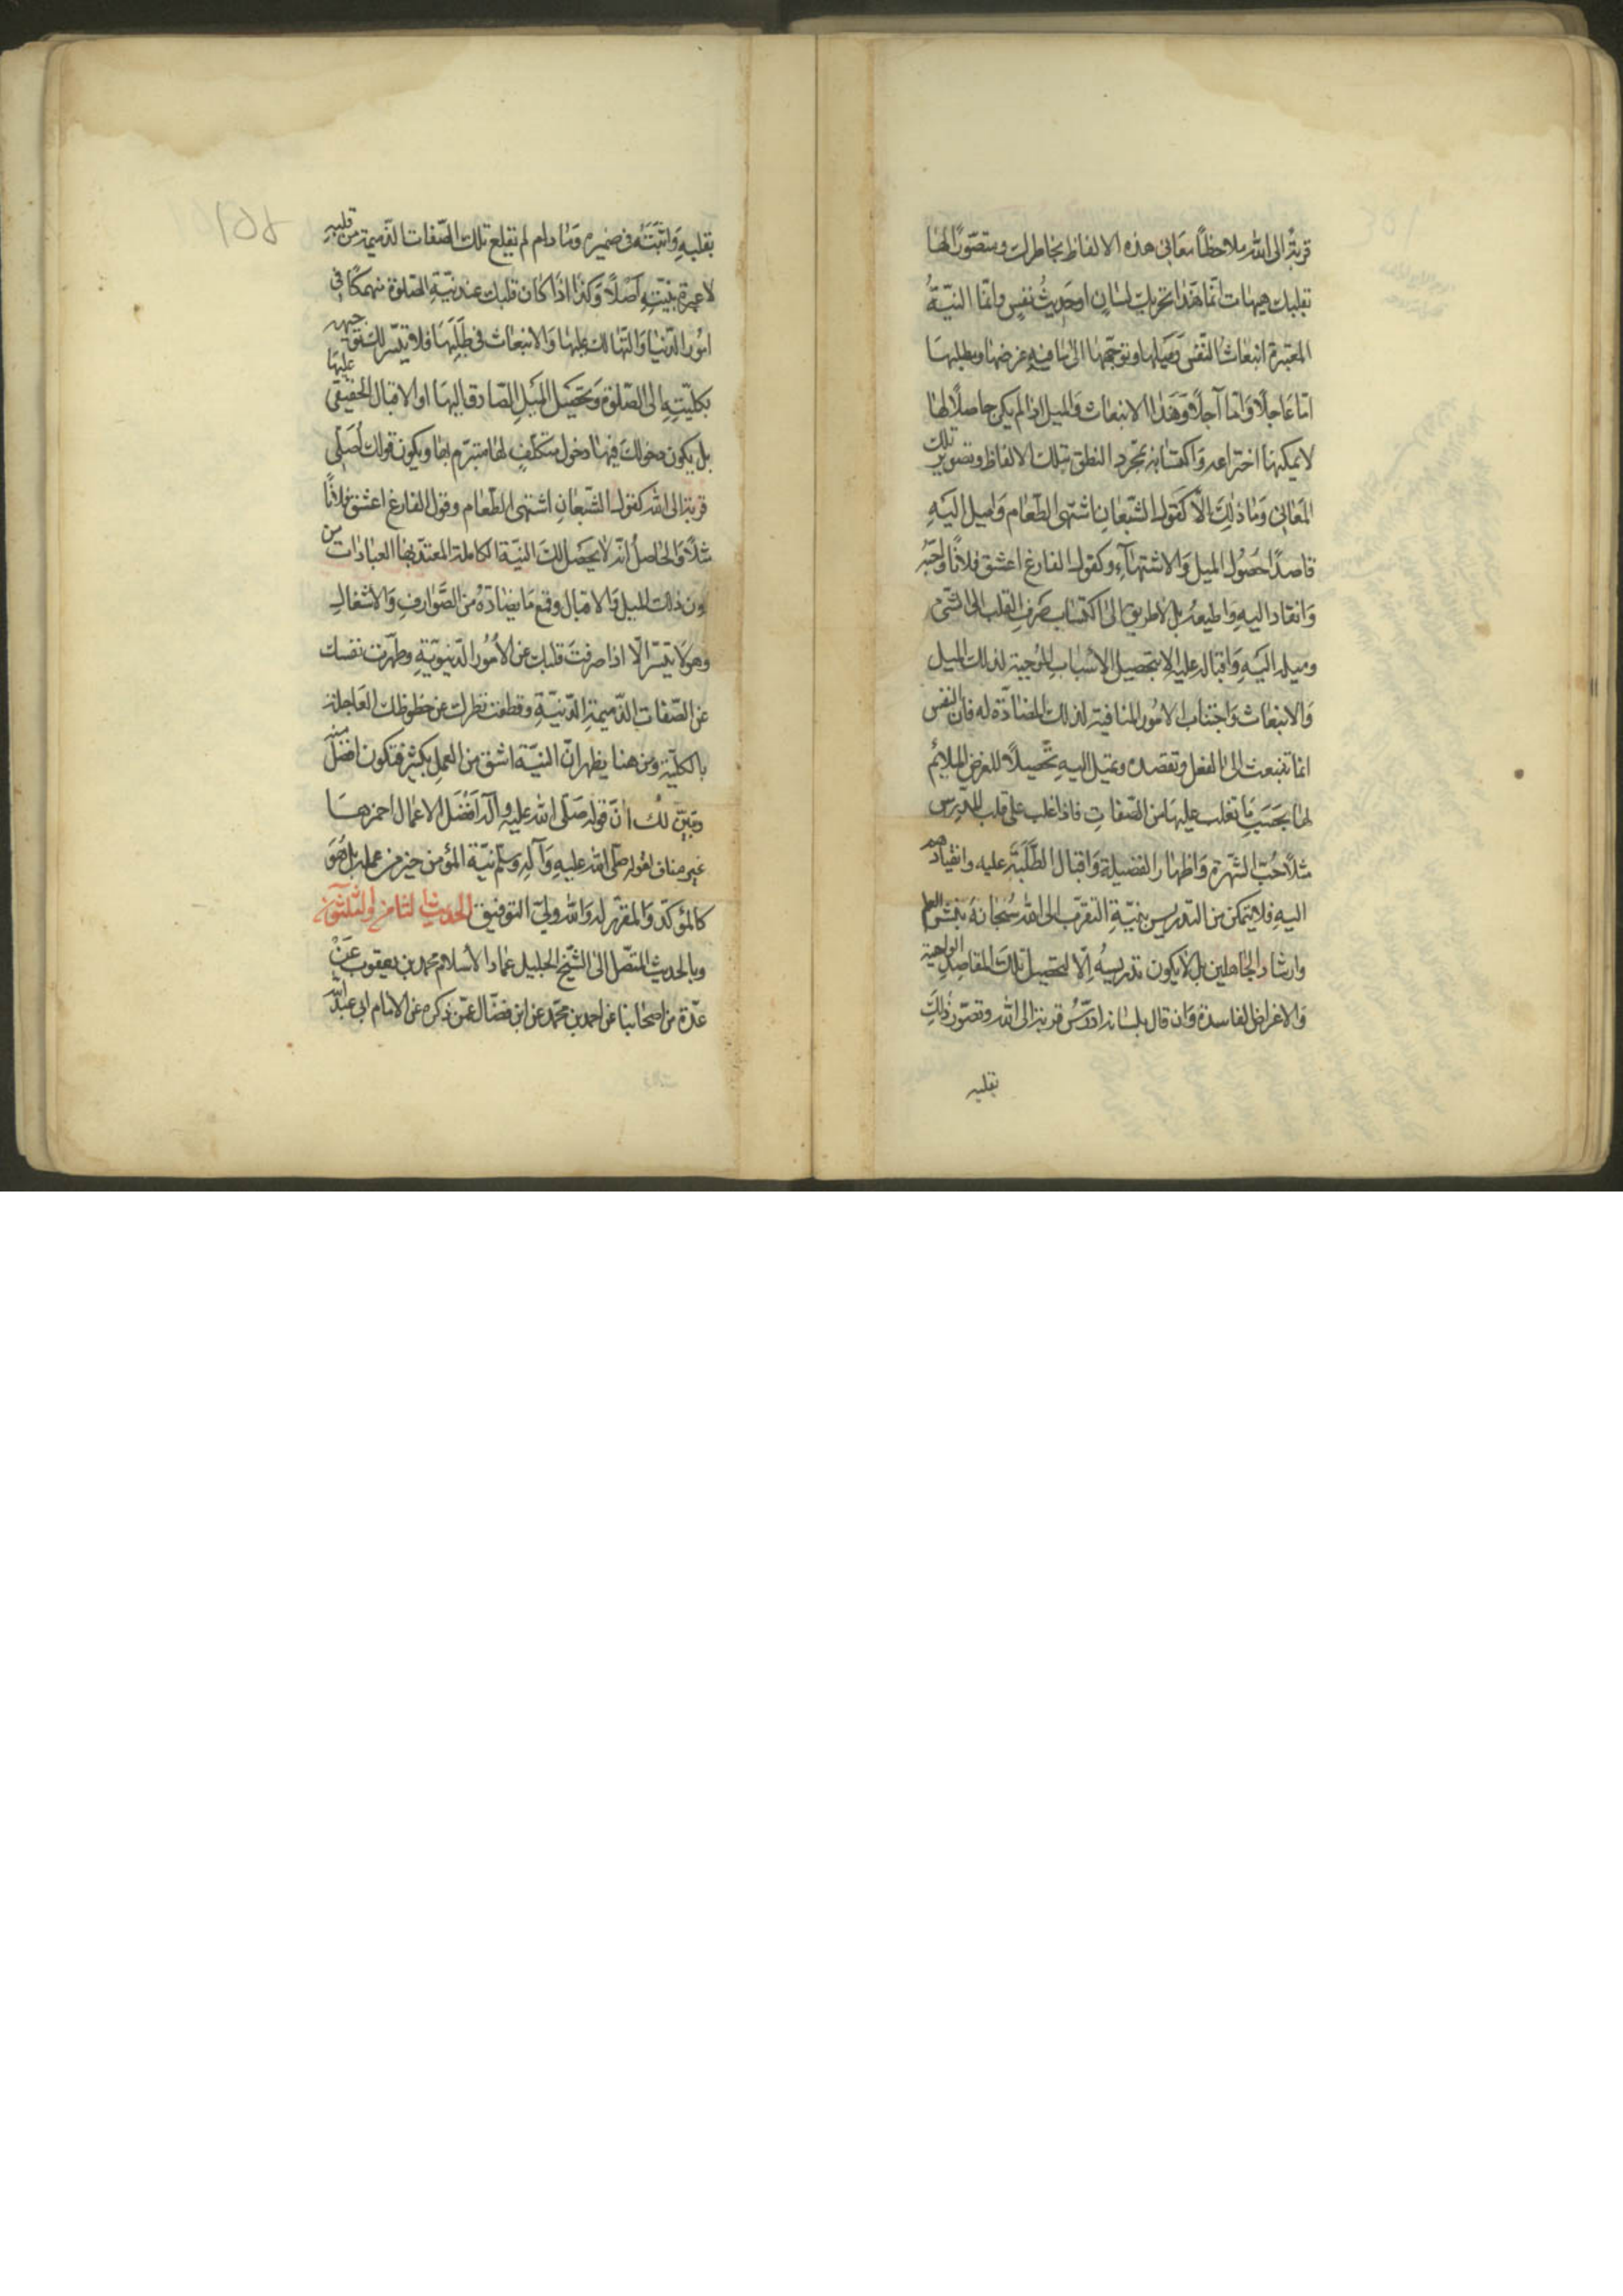 قربة الى الله ملاحظا معاني هذه الالفاظ بخاطرك ومتصورا لها
بقلبك هيهات انما هذا تحريك لسان او حديث نفس وانما النية
المعتبرة انبعاث النفس وميلها وتوجهها الى ما فيه غرضها ومطلبها
اما عاجلا واما آجلا وهذا الانبعاث والميل اذا لم يكن حاصلا لها
لا يمكنها اختراعه واكتسابه بمجرد النطق بتلك الالفاظ وتصوير تلك
المعاني وما ذلك الا كقول الشبعان اشتهي الطعام واميل اليه
قاصدا حصول الميل والاشتهاء وكقول الفارغ اعشق فلانا واحبه
وانقاد اليه واطيعه بل لا طريق الى اكتساب صرف القلب الى الشيء
وميله اليه واقباله عليه الا بتحصيل الاسباب الموجبة لذلك الميل
والانبعاث واجتناب الامور المنافية لذلك المضادة له فان النفس
انما تنبعث الى الفعل وتقصده وتميل اليه تحصيلا للغرض الملائم
لها بحسب ما تغلب عليها من الصفات فاذا غلب على قلب المدرس
مثلا حب الشهرة واظهار الفضيلة واقبال الطلبة عليه وانقيادهم
اليه فلا يتمكن من التدريس بنية التقرب الى الله سبحانه بنشر العلم
وارشاد الجاهلين بل لا يكون تدريسه الا لتحصيل تلك المقاصد الواهية
والاغراض الفاسدة وان قال بلسانه ادرس قربة الى الله وتصور ذلك
بقلبه
بقلبه واثبته في ضميره وما دام لم يقلع تلك الصفات الذميمة من قلبه
لا عبرة بنيته اصلا وكذا اذا كان قلبك عند نية الصلوة منهمكا في
امور الدنيا والتهالك عليها والانبعاث في طلبها فلا يتيسر لك توجيهه
بكليته الى الصلوة وتحصيل الميل الصادق اليها او الاقبال الحقيقي عليها
بل يكون دخولك فيها دخول متكلف لها متبرم بها ويكون قولك اصلي
قربة الى الله كقول الشبعان اشتهي الطعام وقول الفارغ اعشق فلانا
مثلا والحاصل انه لا يحصل لك النية الكاملة المعتد بها العبادات من
دون ذلك الميل والاقبال وقمع ما يضاده من الصوارف والاشغال
وهو لا يتيسر الا اذا صرفت قلبك عن الامور الدنيوية وطهرت نفسك
عن الصفات الذميمة الدنية وقطعت نظرك عن حظوظك العاجلة
بالكلية ومن هنا يظهر ان النية اشق من العمل بكثير فتكون افضل منه
وتبين لك ان قوله صلى الله عليه وآله افضل الاعمال احمزها
غير مناف لقوله صلى الله عليه وآله وسلم نية المؤمن خير من عمله بل هو
كالمؤكد والمقرر له والله ولي التوفيق الحديث الثامن والثلثون
وبالحديث المتصل الى الشيخ الجليل عماد الاسلام محمد بن يعقوب عن
عدة من اصحابنا عن احمد بن محمد عن ابن فضال عمن ذكره عن الامام ابي عبد الله